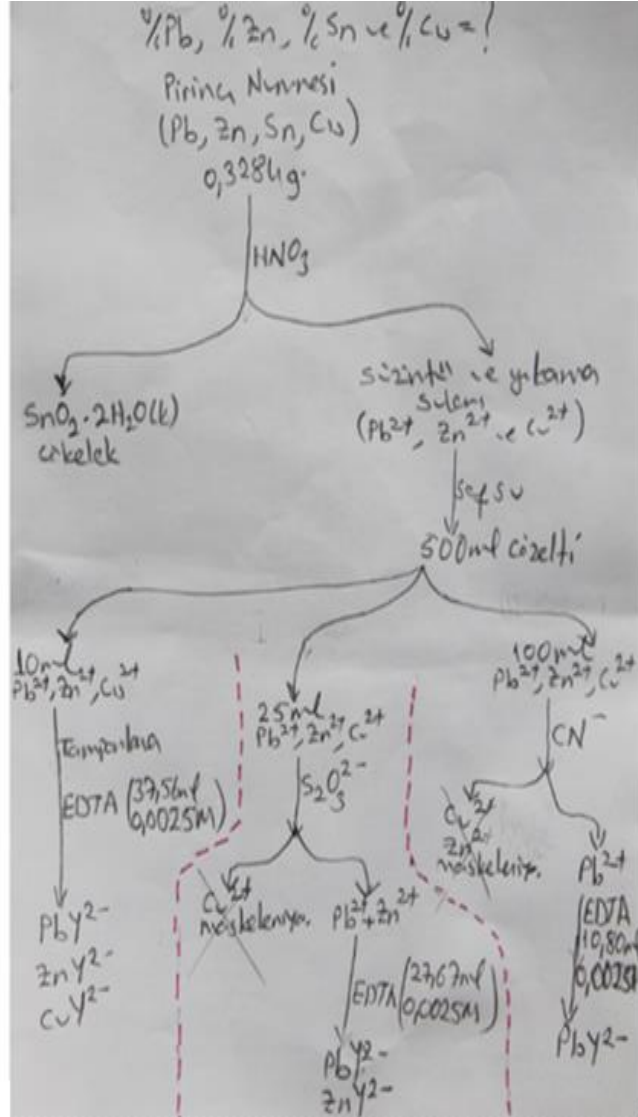 %Pb, %Zn, %Sn ve %Cu=?
Pirinç Numunesi
(Pb, Zn, Sn, Cu)
0,3284g.
HNO3
SnO2·2H2O(k)
çökelek
süzüntü ve yıkama
suları
(Pb2+, Zn2+ ve Cu2+)
saf su
500ml çözelti
10ml
Pb2+, Zn2+, Cu2+
Tamponlama
EDTA (37,56ml
0,0025M)
PbY2-
ZnY2-
CuY2-
25ml
Pb2+, Zn2+, Cu2+
S2O3 2-
Cu2+
maskeleniyor.
Pb2+ + Zn2+
EDTA (27,67ml
0,0025M)
PbY2-
ZnY2-
100ml
Pb2+, Zn2+, Cu2+
CN-
Cu2+
Zn2+
maskeleniyor.
Pb2+
(EDTA
10,80ml
0,0025M
PbY2-